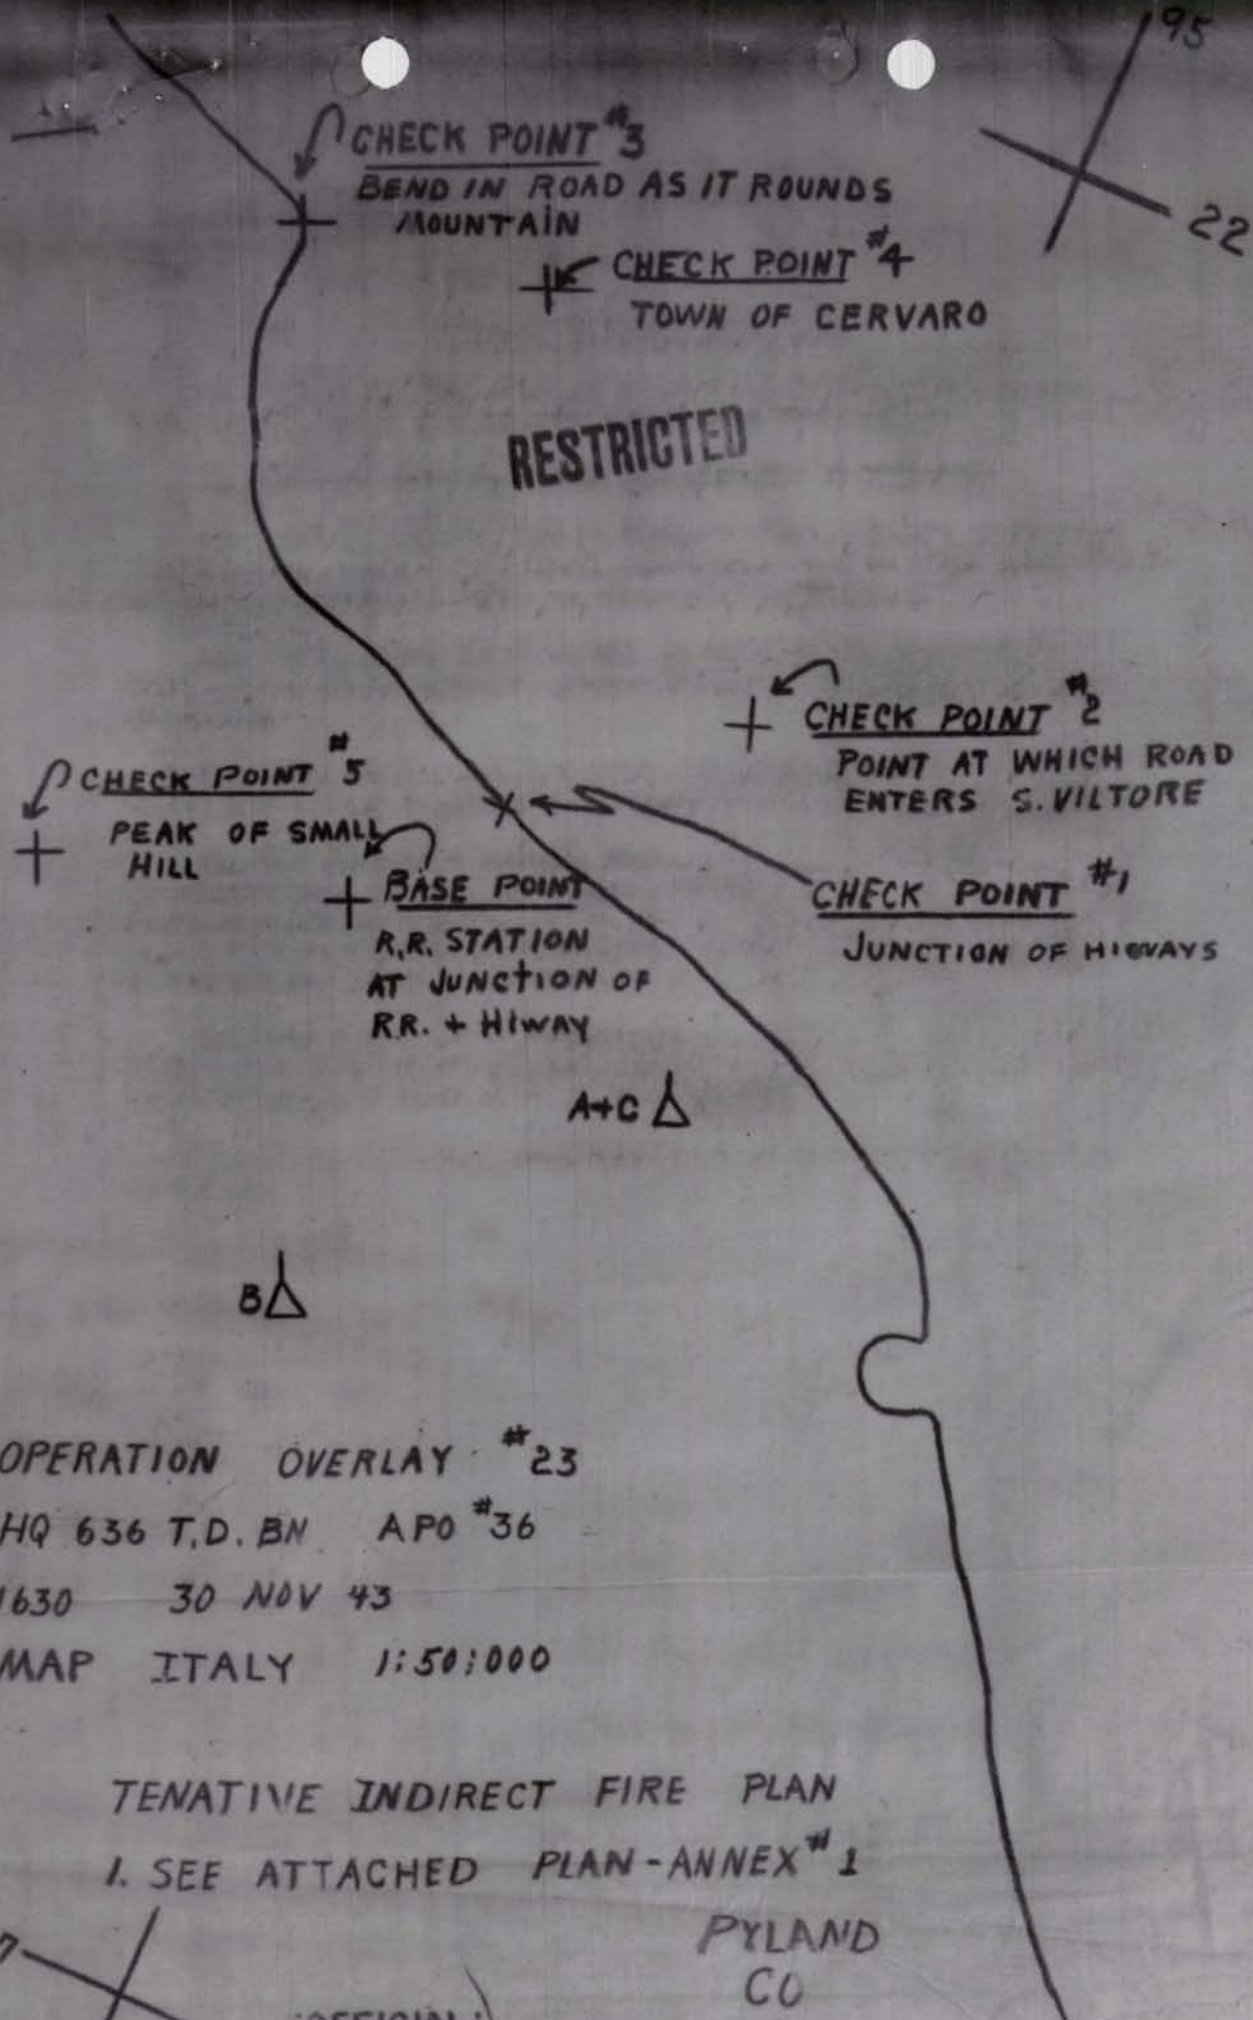 95
22
CHECK POINT #3
BEND IN ROAD AS IT ROUNDS
MOUNTAIN
CHECK POINT #4
TOWN OF CERVARO
RESTRICTED
CHECK POINT #2
POINT AT WHICH ROAD
ENTERS S. VILTORE
CHECK POINT #5
PEAK OF SMALL
HILL
BASE POINT
R.R. STATION
AT JUNCTION OF
RR. + HIWAY
CHECK POINT #1
JUNCTION OF HIWAYS
A+C
B
OPERATION OVERLAY #23
HQ 636 T.D. BN APO #36
1630 30 NOV 43
MAP ITALY 1:50:000
TENATIVE INDIRECT FIRE PLAN
1. SEE ATTACHED PLAN-ANNEX #1
PYLAND
CO
7
OFFICIAL: